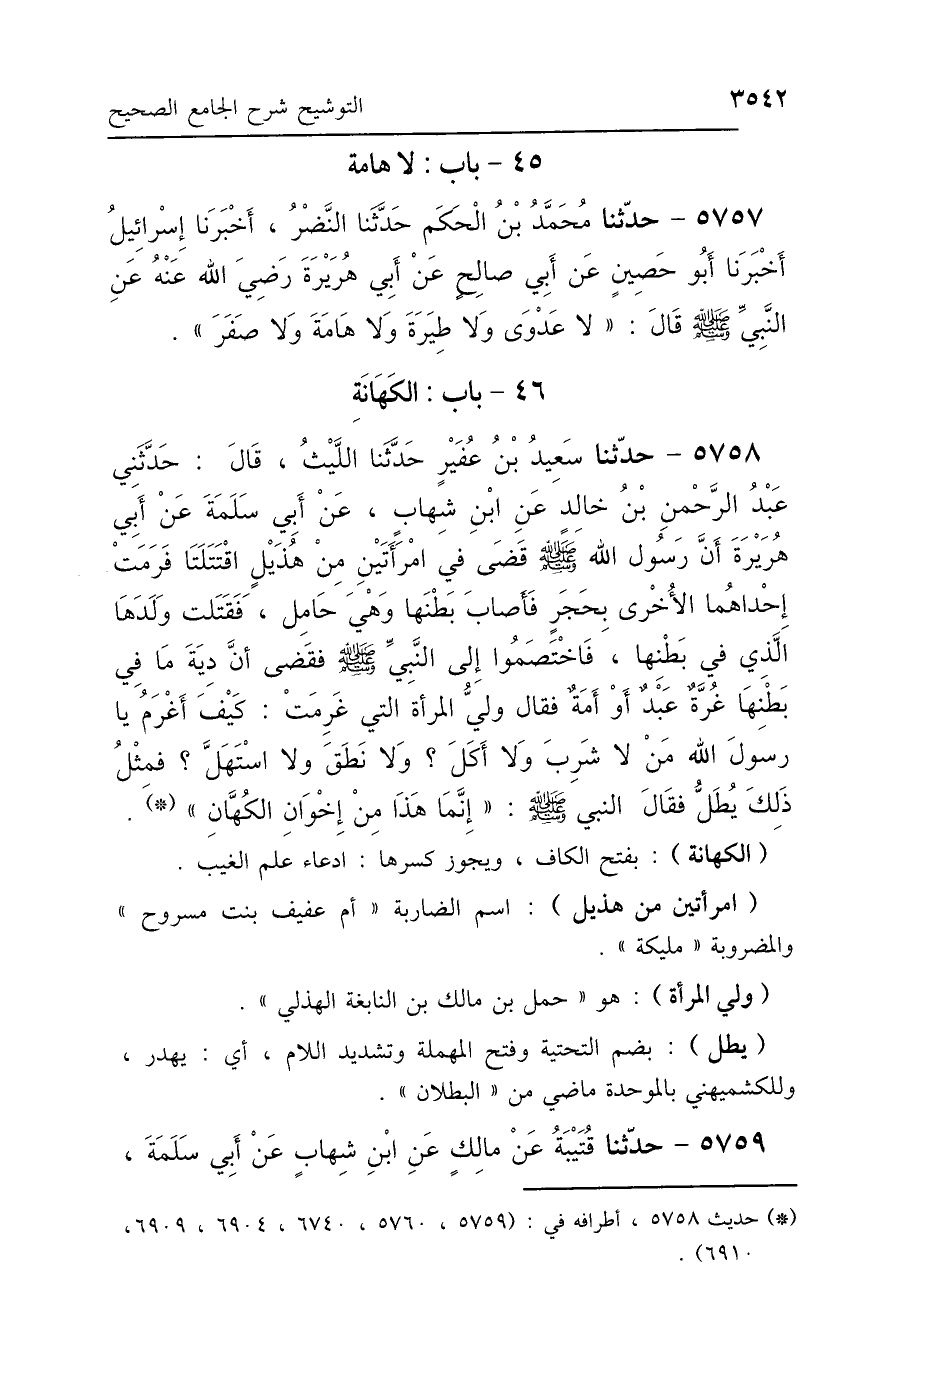 ٣٥٤٢ التوشيح شرح الجامع الصحيح
٤٥ - باب : لا هامة
٥٧٥٧ - حدّثنا مُحَمَّدُ بْنُ الْحَكَمِ حَدَّثَنَا النَّضْرُ ، أَخْبَرَنَا إِسْرائيلُ
أَخْبَرَنَا أَبُو حَصِينٍ عَن أَبِي صالِحٍ عَنْ أَبِي هُرَيْرَةَ رَضِيَ الله عَنْهُ عَنِ
النَّبِيِّ ﷺ قَالَ : « لا عَدْوَى وَلا طِيَرَةَ وَلا هَامَةَ وَلا صَفَرَ » .
٤٦ - باب : الكَهَانَةِ
٥٧٥٨ - حدّثنا سَعِيدُ بْنُ عُفَيْرٍ حَدَّثَنَا اللَّيْثُ ، قَالَ : حَدَّثَنِي
عَبْدُ الرَّحْمنِ بْنُ خالِدٍ عَنِ ابْنِ شِهابٍ ، عَنْ أَبِي سَلَمَةَ عَنْ أَبِي
هُرَيْرَةَ أَنَّ رَسُول الله ﷺ قَضَى في امْرَأَتَيْنِ مِنْ هُذَيْلٍ اقْتَتَلَتَا فَرَمَتْ
إِحْداهُما الأُخْرى بِحَجَرٍ فَأَصابَ بَطْنَها وَهْيَ حَامِل ، فَقَتَلَت ولَدَهَا
الَّذِي في بَطْنِها ، فَاخْتَصَمُوا إلى النَّبِيِّ ﷺ فقَضى أنَّ دِيَةَ مَا فِي
بَطْنِهَا غُرَّةٌ عَبْدٌ أَوْ أَمَةٌ فقال وليُّ المرأة التي غَرِمَتْ : كَيْفَ أَغْرَمُ يا
رسولَ الله مَنْ لا شَرِبَ وَلا أَكَلَ ؟ وَلا نَطَقَ ولا اسْتَهَلَّ ؟ فمثْلُ
ذَلِكَ يُطَلُّ فقَالَ النبي ﷺ : « إِنَّمَا هَذَا مِنْ إِخْوَانِ الكُهَّانِ » (*) .
( الكهانة ) : بفتح الكاف ، ويجوز كسرها : ادعاء علم الغيب .
( امرأتين من هذيل ) : اسم الضاربة « أم عفيف بنت مسروح »
والمضروبة « مليكة » .
( ولي المرأة ) : هو « حمل بن مالك بن النابغة الهذلي » .
( يطل ) : بضم التحتية وفتح المهملة وتشديد اللام ، أي : يهدر ،
وللكشميهني بالموحدة ماضي من « البطلان » .
٥٧٥٩ - حدّثنا قُتَيْبَةُ عَنْ مالِكٍ عَنِ ابْنِ شِهابٍ عَنْ أَبِي سَلَمَةَ ،
(*) حديث ٥٧٥٨ ، أطرافه في : (٥٧٥٩ ، ٥٧٦٠ ، ٦٧٤٠ ، ٦٩٠٤ ، ٦٩٠٩،
٦٩١٠) .